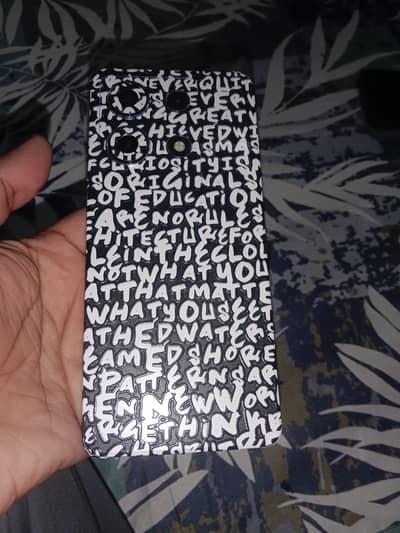 NEVERQUIT
EVERV
GREATV
CHIEVEDW
ASMAS
RIOSITYIS
SORIGINALS
OFEDUCATIO
ARENORULES
HITECTUREFOR
LEINTHECLOU
NOTWHATYOU
ATTHATMATTE
WHATYOUSEET
THEDWATERS
EAMEDSHORE
PATTERNSAR
HENINEWWOR
ERGETHINK